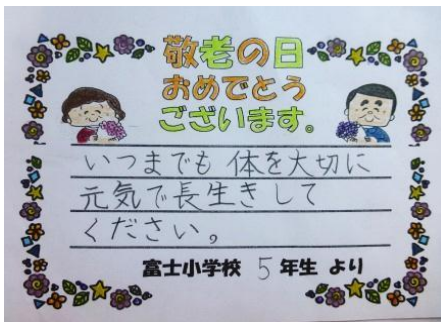 敬老の日
おめでとう
ございます。
いつまでも 体を大切に
元気で長生きして
ください。
富士小学校 5年生 より